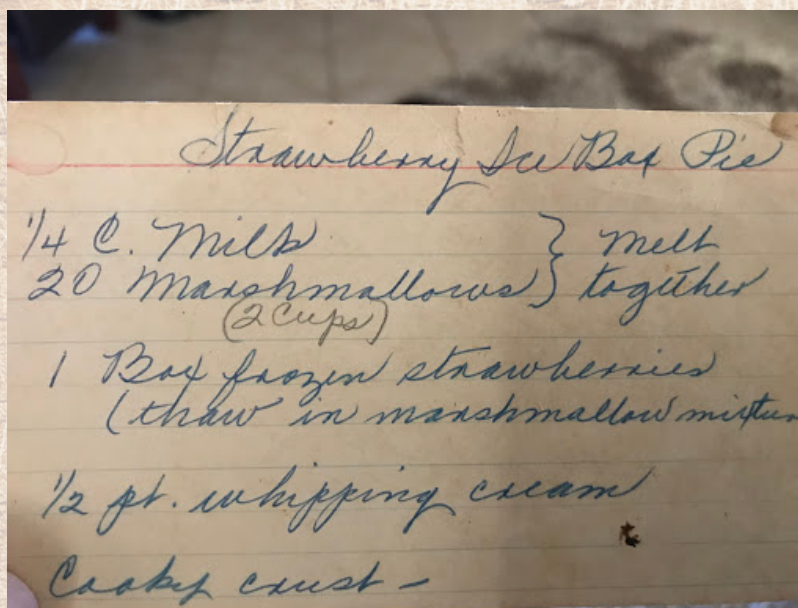 Strawberry Ice Box Pie
1/4 C. Milk } Melt
20 Marshmallows } together
(2 Cups)
1 Box frozen strawberries
(thaw in marshmallow mixtur
1/2 pt. whipping cream
Cooky crust –